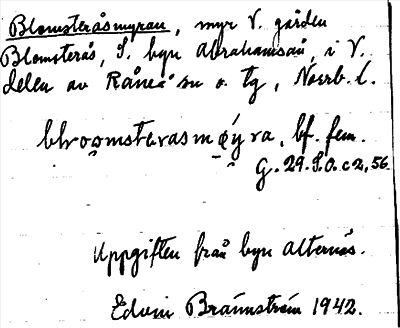 Blomsteråsmyran, myr V. gården
Blomsterås, S. byn Abrahamsån, i V.
delen av Råneå sn o. tg, Norrb. l.
bf. fem.
G. 29. S.O. c2, 56.
Uppgiften från byn Alternäs.
Edvin Brännström 1942.